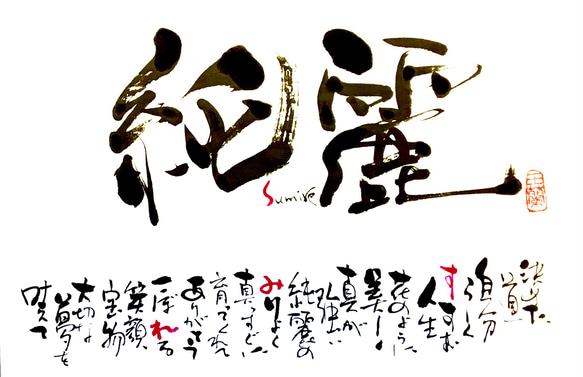 純麗
Sumire
決めた
道
自分
らしく
すすむ
人生
花のように
美しく
真が
強い
純麗の
みりょく
真っすぐに
育ってくれて
ありがとう
こぼれる
笑顔
宝物
大切な
夢を
叶えて